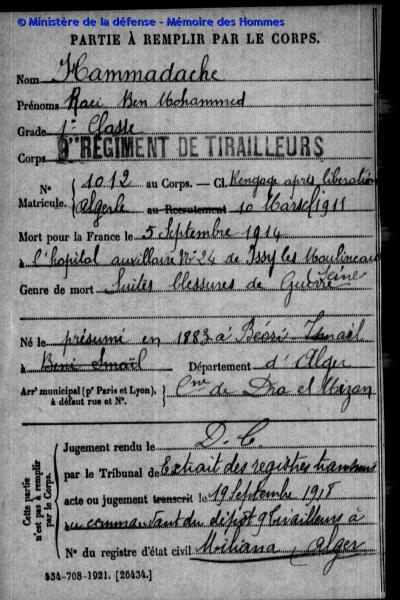 © Ministère de la défense - Mémoire des Hommes
PARTIE À REMPLIR PAR LE CORPS.
Nom Hammadache
Prénoms Raci Ben Mohammed
Grade 1re Classe
Corps 9e REGIMENT DE TIRAILLEURS
N° Matricule. 1012 au Corps. — Cl. Rengagé après libération
Alger au Recrutement 10 Mars 1911
Mort pour la France le 5 Septembre 1914
à l'hopital auxiliaire N° 24 de Issy les Moulineaux
Seine
Genre de mort Suites blessures de Guerre
Né le présumé en 1883 à
à Beni Smaïl Département d'Alger
Arrt municipal (pr Paris et Lyon), à défaut rue et N°. Cne de Dra el Mizan
Cette partie n'est pas à remplir par le Corps.
Jugement rendu le D. C.
par le Tribunal de Extrait des registres transmis
acte ou jugement transcrit le 19 Septembre 1918
au commandant du dépôt 9 tirailleurs à
N° du registre d'état civil Miliana, Alger
534-708-1921. [26434.]